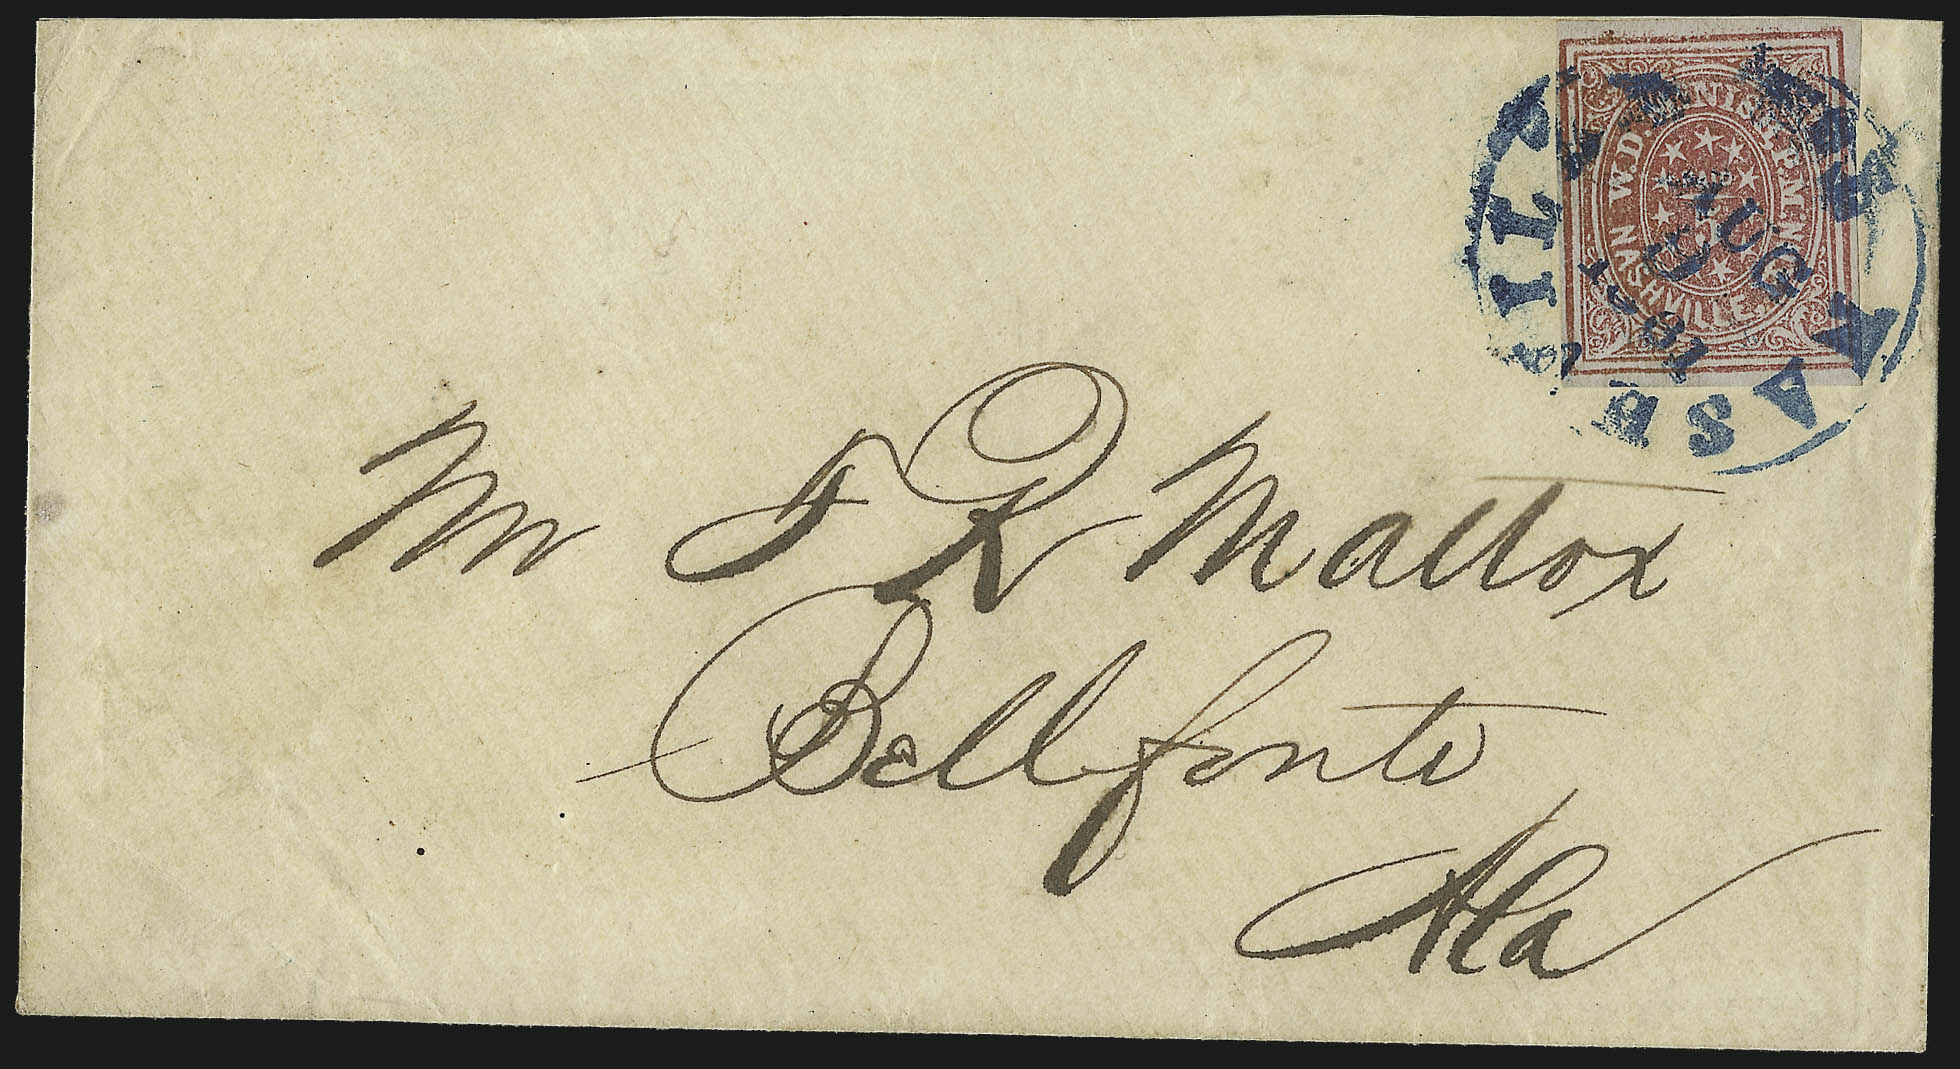 W.D. M'NISH, P.M.
NASHVILLE,
NASHVILLE
AUG
1861
Mr F R Mattox
Bellfonte
Ala